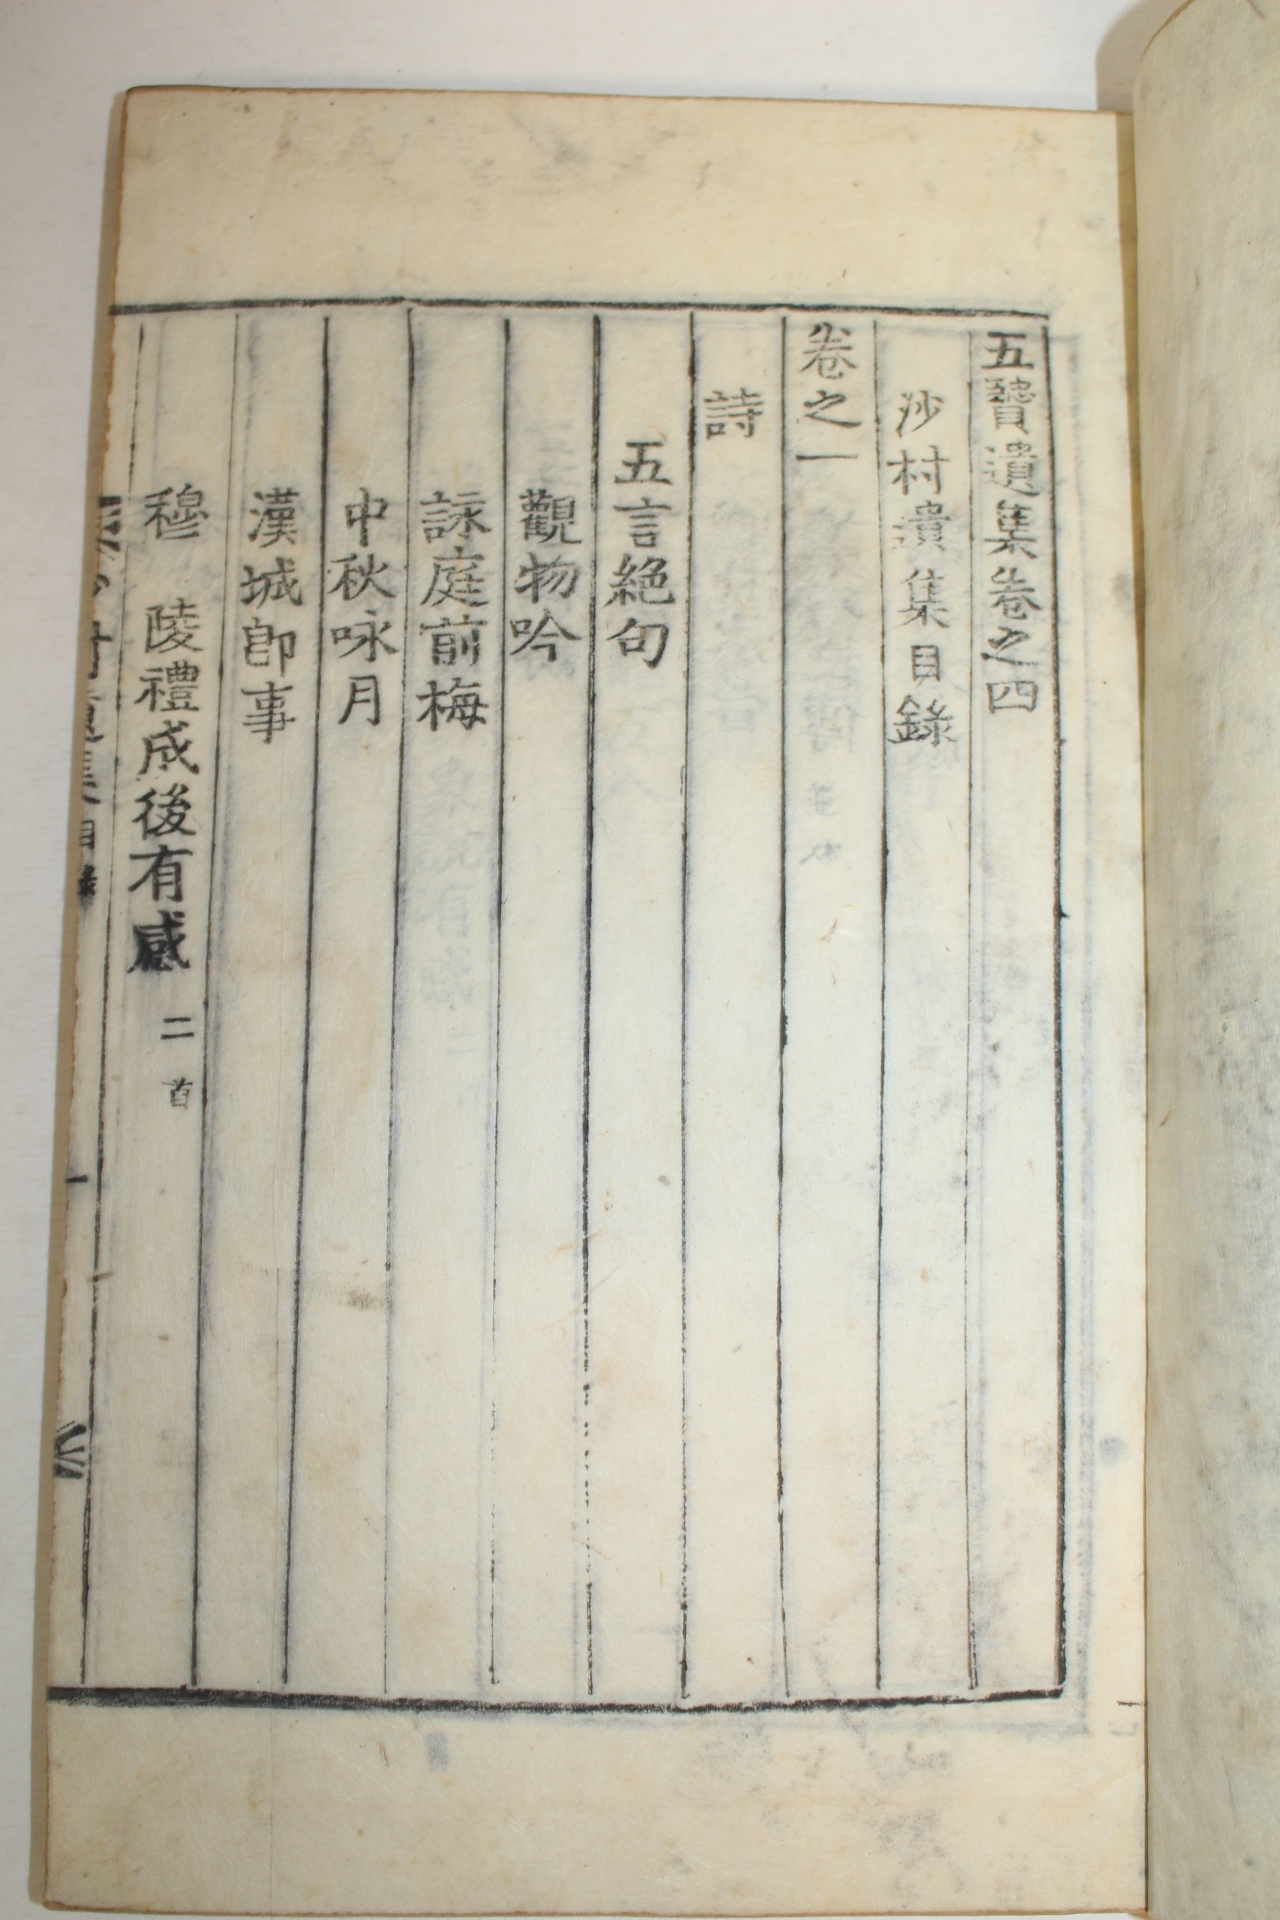 五寶遺集卷之四
沙村遺集目錄
卷之一
詩
五言絕句
觀物吟
詠庭前梅
中秋咏月
漢城卽事
穆陵禮成後有感 二首
沙村遺集目錄 一